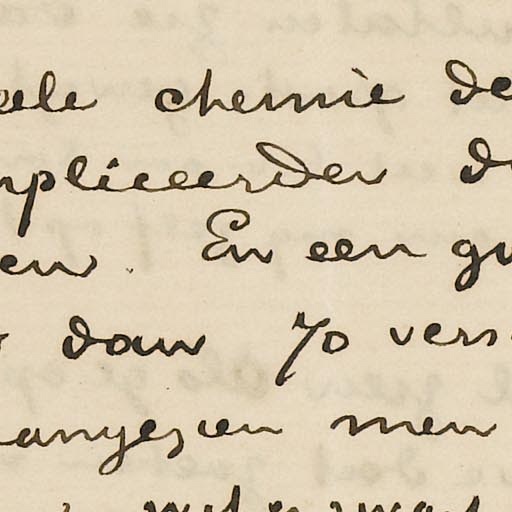 eele chemie de
mpliceerder d
en. En een gr
dan 70 vers
aangezien men